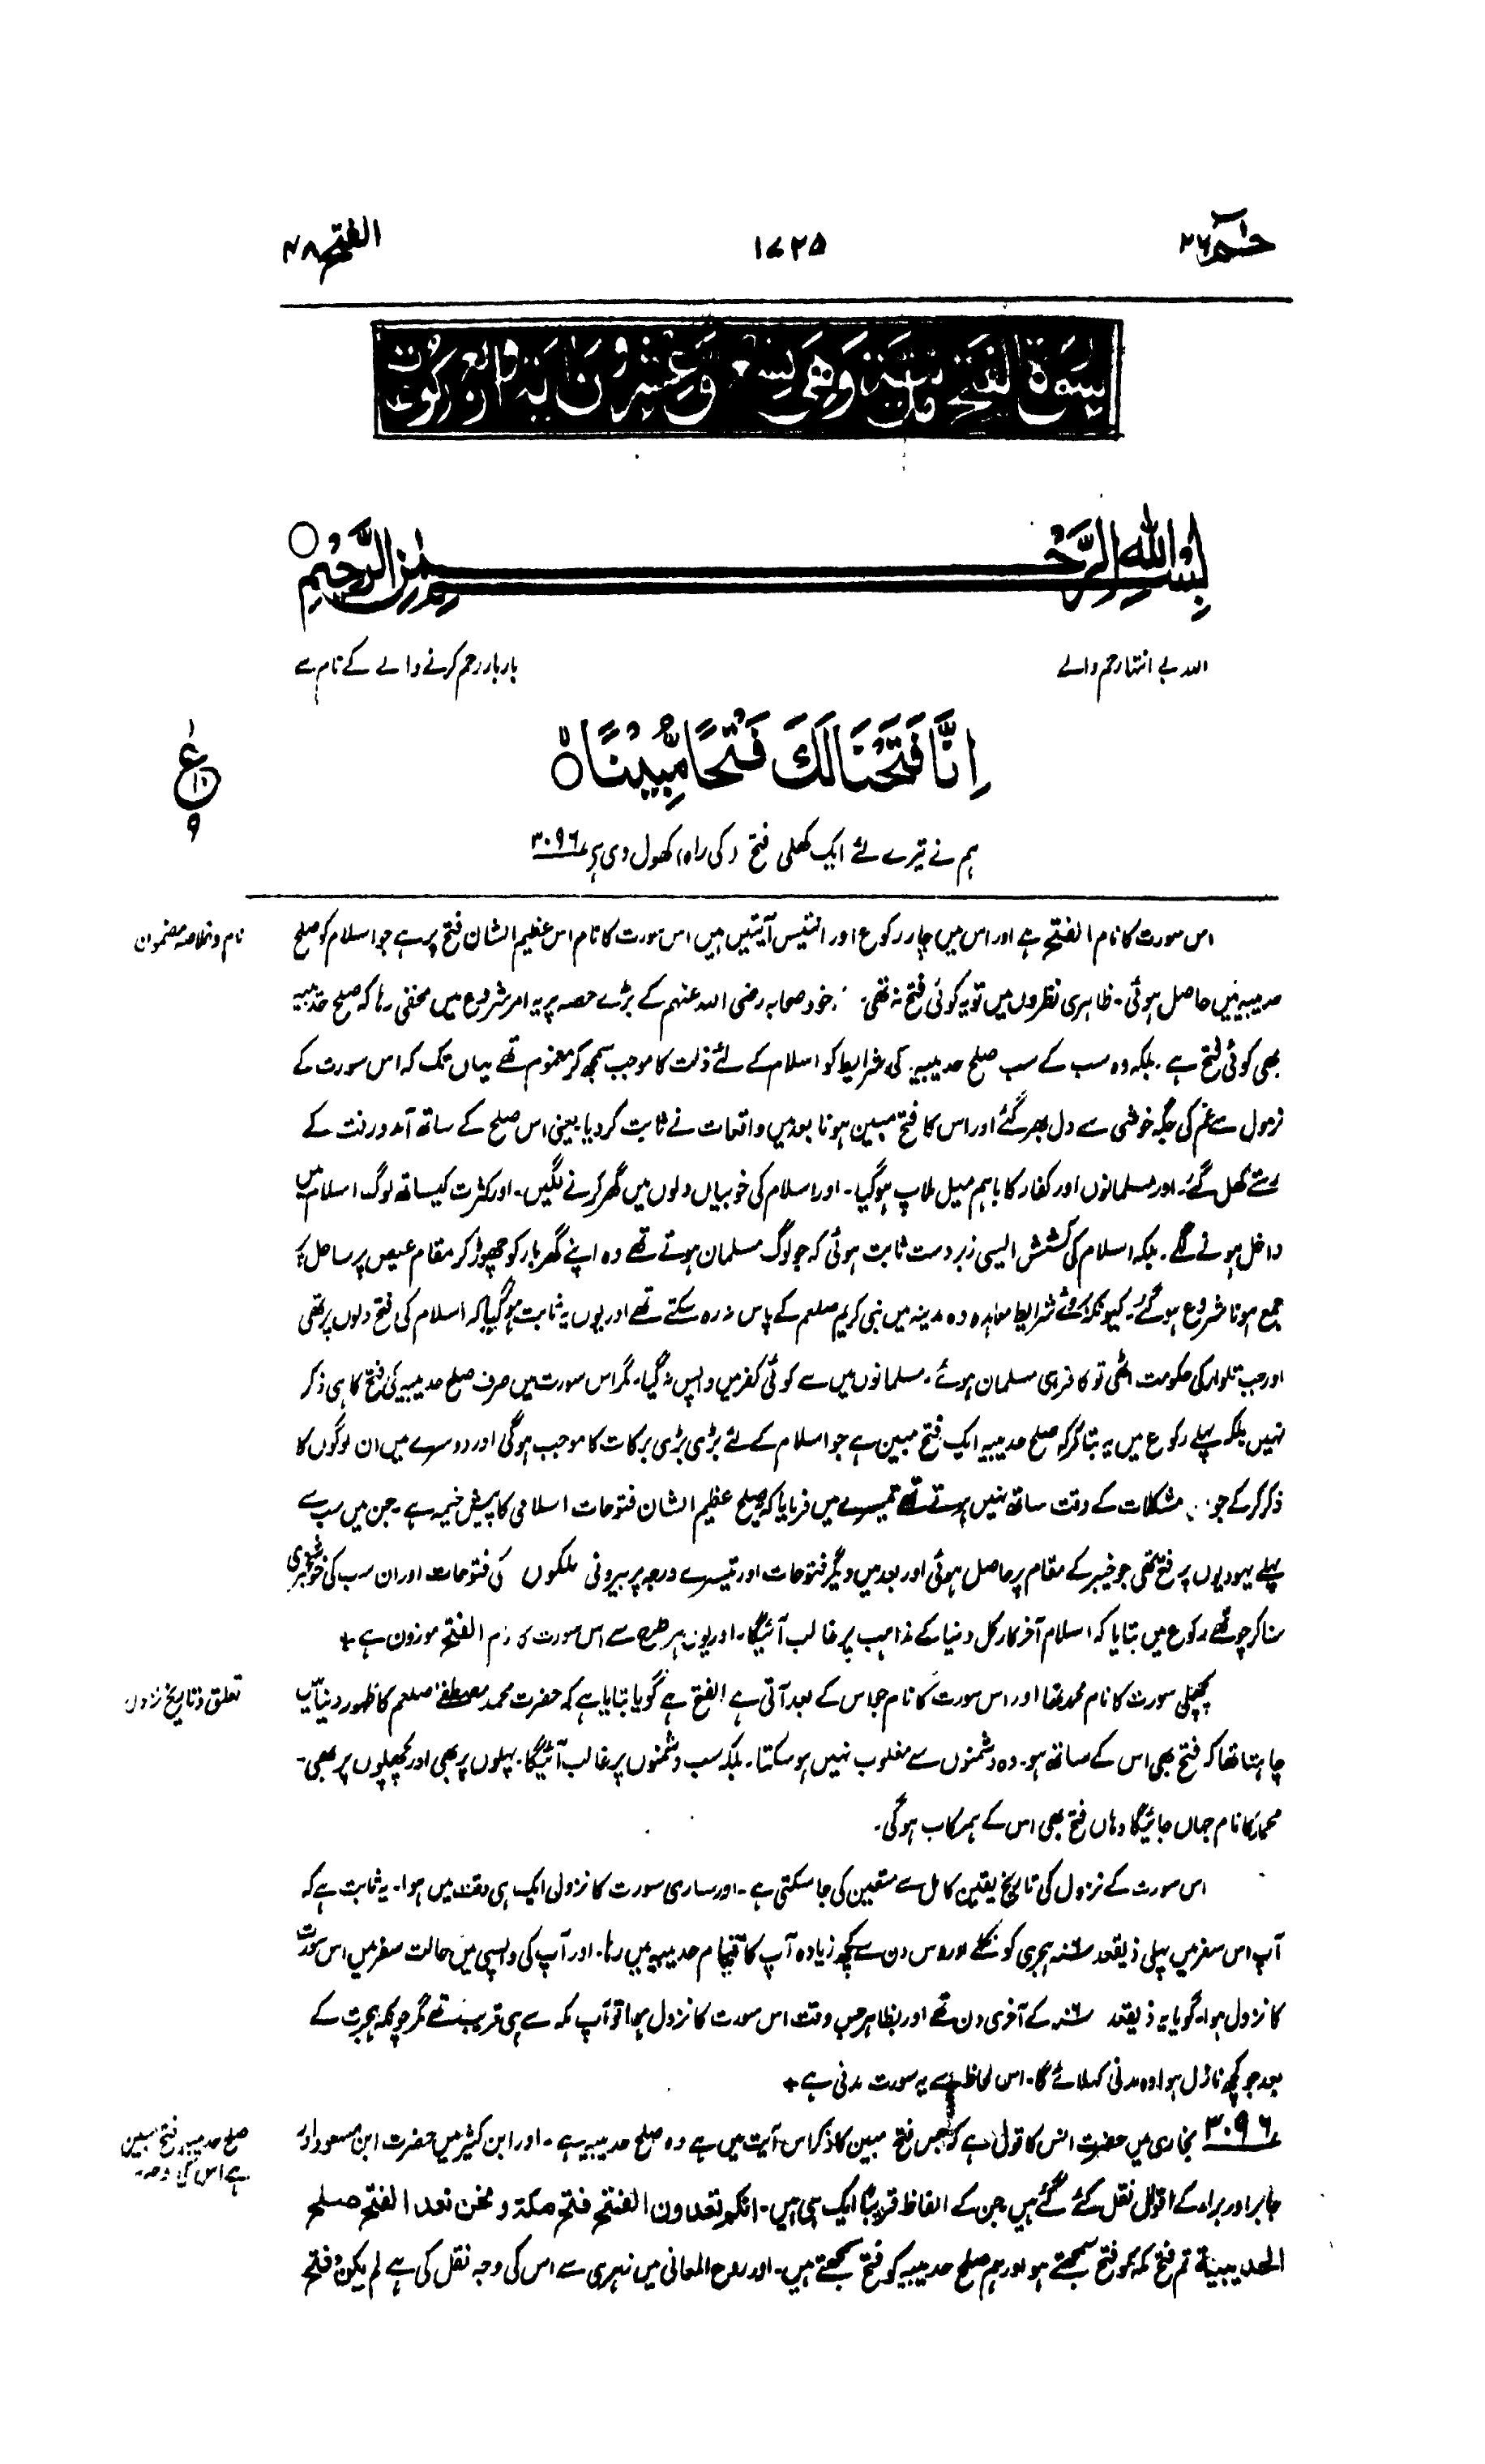 حٰمٓ ٢٦
١٧٢٥
الفتح ٤٨
سُوْرَةُ الْفَتْحِ مَدَنِيَّةٌ وَّهِيَ تِسْعٌ وَّعِشْرُوْنَ اٰيَةً وَّاَرْبَعُ رُكُوْعَاتٍ
بِسْمِ اللّٰهِ الرَّحْمٰنِ الرَّحِيْمِ ○
اللہ بے انتہا رحم والے
بار بار رحم کرنے والے کے نام سے
اِنَّا فَتَحْنَا لَكَ فَتْحًا مُّبِيْنًا ○
ع
١٠
٩
ہم نے تیرے لئے ایک کھلی فتح (کی راہ) کھول دی ہے ٣٠٩٦
نام و خلاصہ مضمون
اس سورت کا نام الفتح ہے اور اس میں چار رکوع اور انتیس آیتیں ہیں اس سورت کا نام اس عظیم الشان فتح پر ہے جو اسلام کو صلح
حدیبیہ میں حاصل ہوئی۔ ظاہری نظروں میں تو یہ کوئی فتح نہ تھی۔ خود صحابہ رضی اللہ عنہم کے بڑے حصہ پر یہ امر شروع میں مخفی رہا کہ صلح حدیبیہ
بھی کوئی فتح ہے۔ بلکہ وہ سب کے سب صلح حدیبیہ کی شرایط کو اسلام کے لئے ذلت کا موجب سمجھ کر مغموم تھے یہاں تک کہ اس سورت کے
نزول سے غم کی جگہ خوشی سے دل بھر گئے اور اس کا فتح مبین ہونا بعد میں واقعات نے ثابت کر دیا یعنی اس صلح کے ساتھ آمد و رفت کے
رستے کھل گئے۔ اور مسلمانوں اور کفار کا باہم میل ملاپ ہو گیا۔ اور اسلام کی خوبیاں دلوں میں گھر کرنے لگیں۔ اور کثرت کیساتھ لوگ اسلام میں
داخل ہونے لگے۔ بلکہ اسلام کی کشش ایسی زبردست ثابت ہوئی کہ جو لوگ مسلمان ہوتے تھے وہ اپنے گھر بار کو چھوڑ کر مقام عیص پر ساحل پر
جمع ہونا شروع ہو گئے۔ کیونکہ بروئے شرایط معاہدہ وہ مدینہ میں نبی کریم صلعم کے پاس نہ رہ سکتے تھے اور یوں یہ ثابت ہو گیا کہ اسلام کی فتح دلوں پر تھی
اور جب تلوار کی حکومت اٹھی تو کافر ہی مسلمان ہوئے۔ مسلمانوں میں سے کوئی کفر میں واپس نہ گیا۔ مگر اس سورت میں صرف صلح حدیبیہ کی فتح کا ہی ذکر
نہیں بلکہ پہلے رکوع میں یہ بتا کر کہ صلح حدیبیہ ایک فتح مبین ہے جو اسلام کے لئے بڑی بڑی برکات کا موجب ہوگی اور دوسرے میں ان لوگوں کا
ذکر کر کے جو مشکلات کے وقت ساتھ نہیں ہوتے تھے تیسرے میں فرمایا کہ یہ صلح عظیم الشان فتوحات اسلامی کا پیش خیمہ ہے۔ جن میں سب سے
پہلے یہودیوں پر فتح تھی جو خیبر کے مقام پر حاصل ہوئی اور بعد میں دیگر فتوحات اور تیسرے درجہ پر بیرونی ملکوں کی فتوحات اور ان سب کی خوشخبری
سنا کر چوتھے رکوع میں بتایا کہ اسلام آخر کار کل دنیا کے مذاہب پر غالب آئیگا۔ اور یوں ہر طرح سے اس سورت کا نام الفتح موزون ہے +
تعلق و تاریخ نزول
پچھلی سورت کا نام محمد تھا اور اس سورت کا نام جو اس کے بعد آتی ہے الفتح ہے گویا بتایا ہے کہ حضرت محمد مصطفےٰ صلعم کا ظہور دنیا میں
چاہتا تھا کہ فتح بھی اس کے ساتھ ہو۔ وہ دشمنوں سے مغلوب نہیں ہو سکتا۔ بلکہ سب دشمنوں پر غالب آئیگا۔ پہلوں پر بھی اور پچھلوں پر بھی۔
محمدؐ کا نام جہاں جائیگا وہاں فتح بھی اس کے ہمرکاب ہوگی۔
اس سورت کے نزول کی تاریخ یقین کامل سے متعین کی جا سکتی ہے۔ اور ساری سورت کا نزول ایک ہی دفعہ میں ہوا۔ یہ ثابت ہے کہ
آپ اس سفر میں پہلی ذیقعد سنہ ٦ ہجری کو نکلے اور دس دن سے کچھ زیادہ آپ کا قیام حدیبیہ میں رہا۔ اور آپ کی واپسی میں حالت سفر میں اس سورت
کا نزول ہوا۔ گویا یہ ذیقعد سنہ ٦ کے آخری دن تھے اور بظاہر جس وقت اس سورت کا نزول ہوا تو آپ مکہ سے ہی قریب تھے مگر چونکہ ہجرت کے
بعد جو کچھ نازل ہوا وہ مدنی کہلائے گا۔ اس لحاظ سے یہ سورت مدنی ہے +
صلح حدیبیہ فتح مبین
ہے اس کی وجہ
٣٠٩٦ بخاری میں حضرت انس کا قول ہے کہ جس فتح مبین کا ذکر اس آیت میں ہے وہ صلح حدیبیہ ہے۔ اور ابن کثیر میں حضرت ابن مسعود اور
جابر اور براء کے اقوال نقل کئے گئے ہیں جن کے الفاظ قریباً ایک ہی ہیں۔ انکم تعدون الفتح فتح مکة و نحن نعد الفتح صلح
الحدیبیة تم فتح مکہ کو فتح سمجھتے ہو اور ہم صلح حدیبیہ کو فتح سمجھتے ہیں۔ اور روح المعانی میں زہری سے اس کی وجہ نقل کی ہے لم یکن فتح